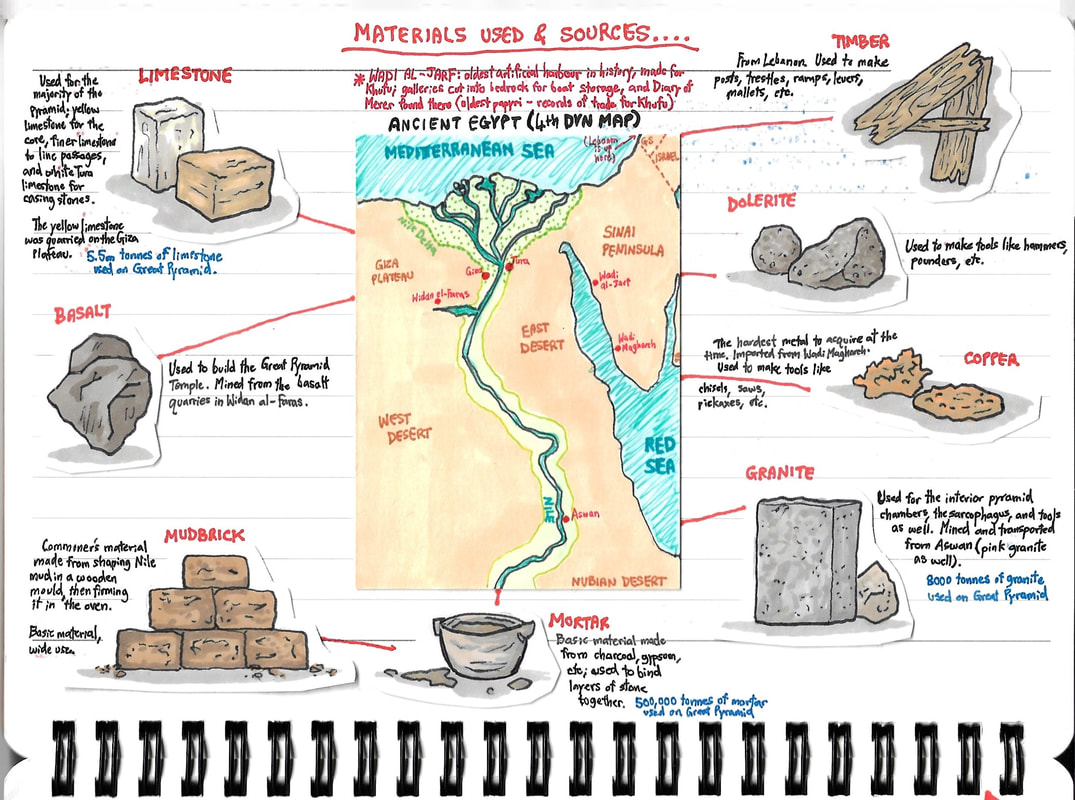 MATERIALS USED & SOURCES....
* WADI AL-JARF: oldest artificial harbour in history, made for
Khufu; galleries cut into bedrock for boat storage, and Diary of
Merer found there (oldest papyri - records of trade for Khufu)
ANCIENT EGYPT (4th DYN MAP)
LIMESTONE
Used for the
majority of the
pyramid; yellow
limestone for the
core, finer limestone
to line passages,
and white Tura
limestone for
casing stones.
The yellow limestone
was quarried on the Giza
Plateau.
5.5m tonnes of limestone
used on Great Pyramid.
BASALT
Used to build the Great Pyramid
Temple. Mined from the basalt
quarries in Widan al-Faras.
MUDBRICK
Commoner's material
made from shaping Nile
mud in a wooden
mould, then firming
it in the oven.
Basic material,
wide use.
MEDITERRANEAN SEA
(Lebanon
is up
here)
GS
ISRAEL
Nile Delta
SINAI
PENINSULA
GIZA
PLATEAU
Giza
Tura
Widan el-Faras
Wadi
al-Jarf
Wadi
Magharah
EAST
DESERT
WEST
DESERT
RED
SEA
NILE
Aswan
NUBIAN DESERT
TIMBER
From Lebanon. Used to make
posts, trestles, ramps, levers,
mallets, etc.
DOLERITE
Used to make tools like hammers,
pounders, etc.
COPPER
The hardest metal to acquire at the
time. Imported from Wadi Magharah.
Used to make tools like
chisels, saws,
pickaxes, etc.
GRANITE
Used for the interior pyramid
chambers, the sarcophagus, and tools
as well. Mined and transported
from Aswan (pink granite
as well).
8000 tonnes of granite
used on Great Pyramid
MORTAR
Basic material made
from charcoal, gypsum,
etc; used to bind
layers of stone
together.
500,000 tonnes of mortar
used on Great Pyramid